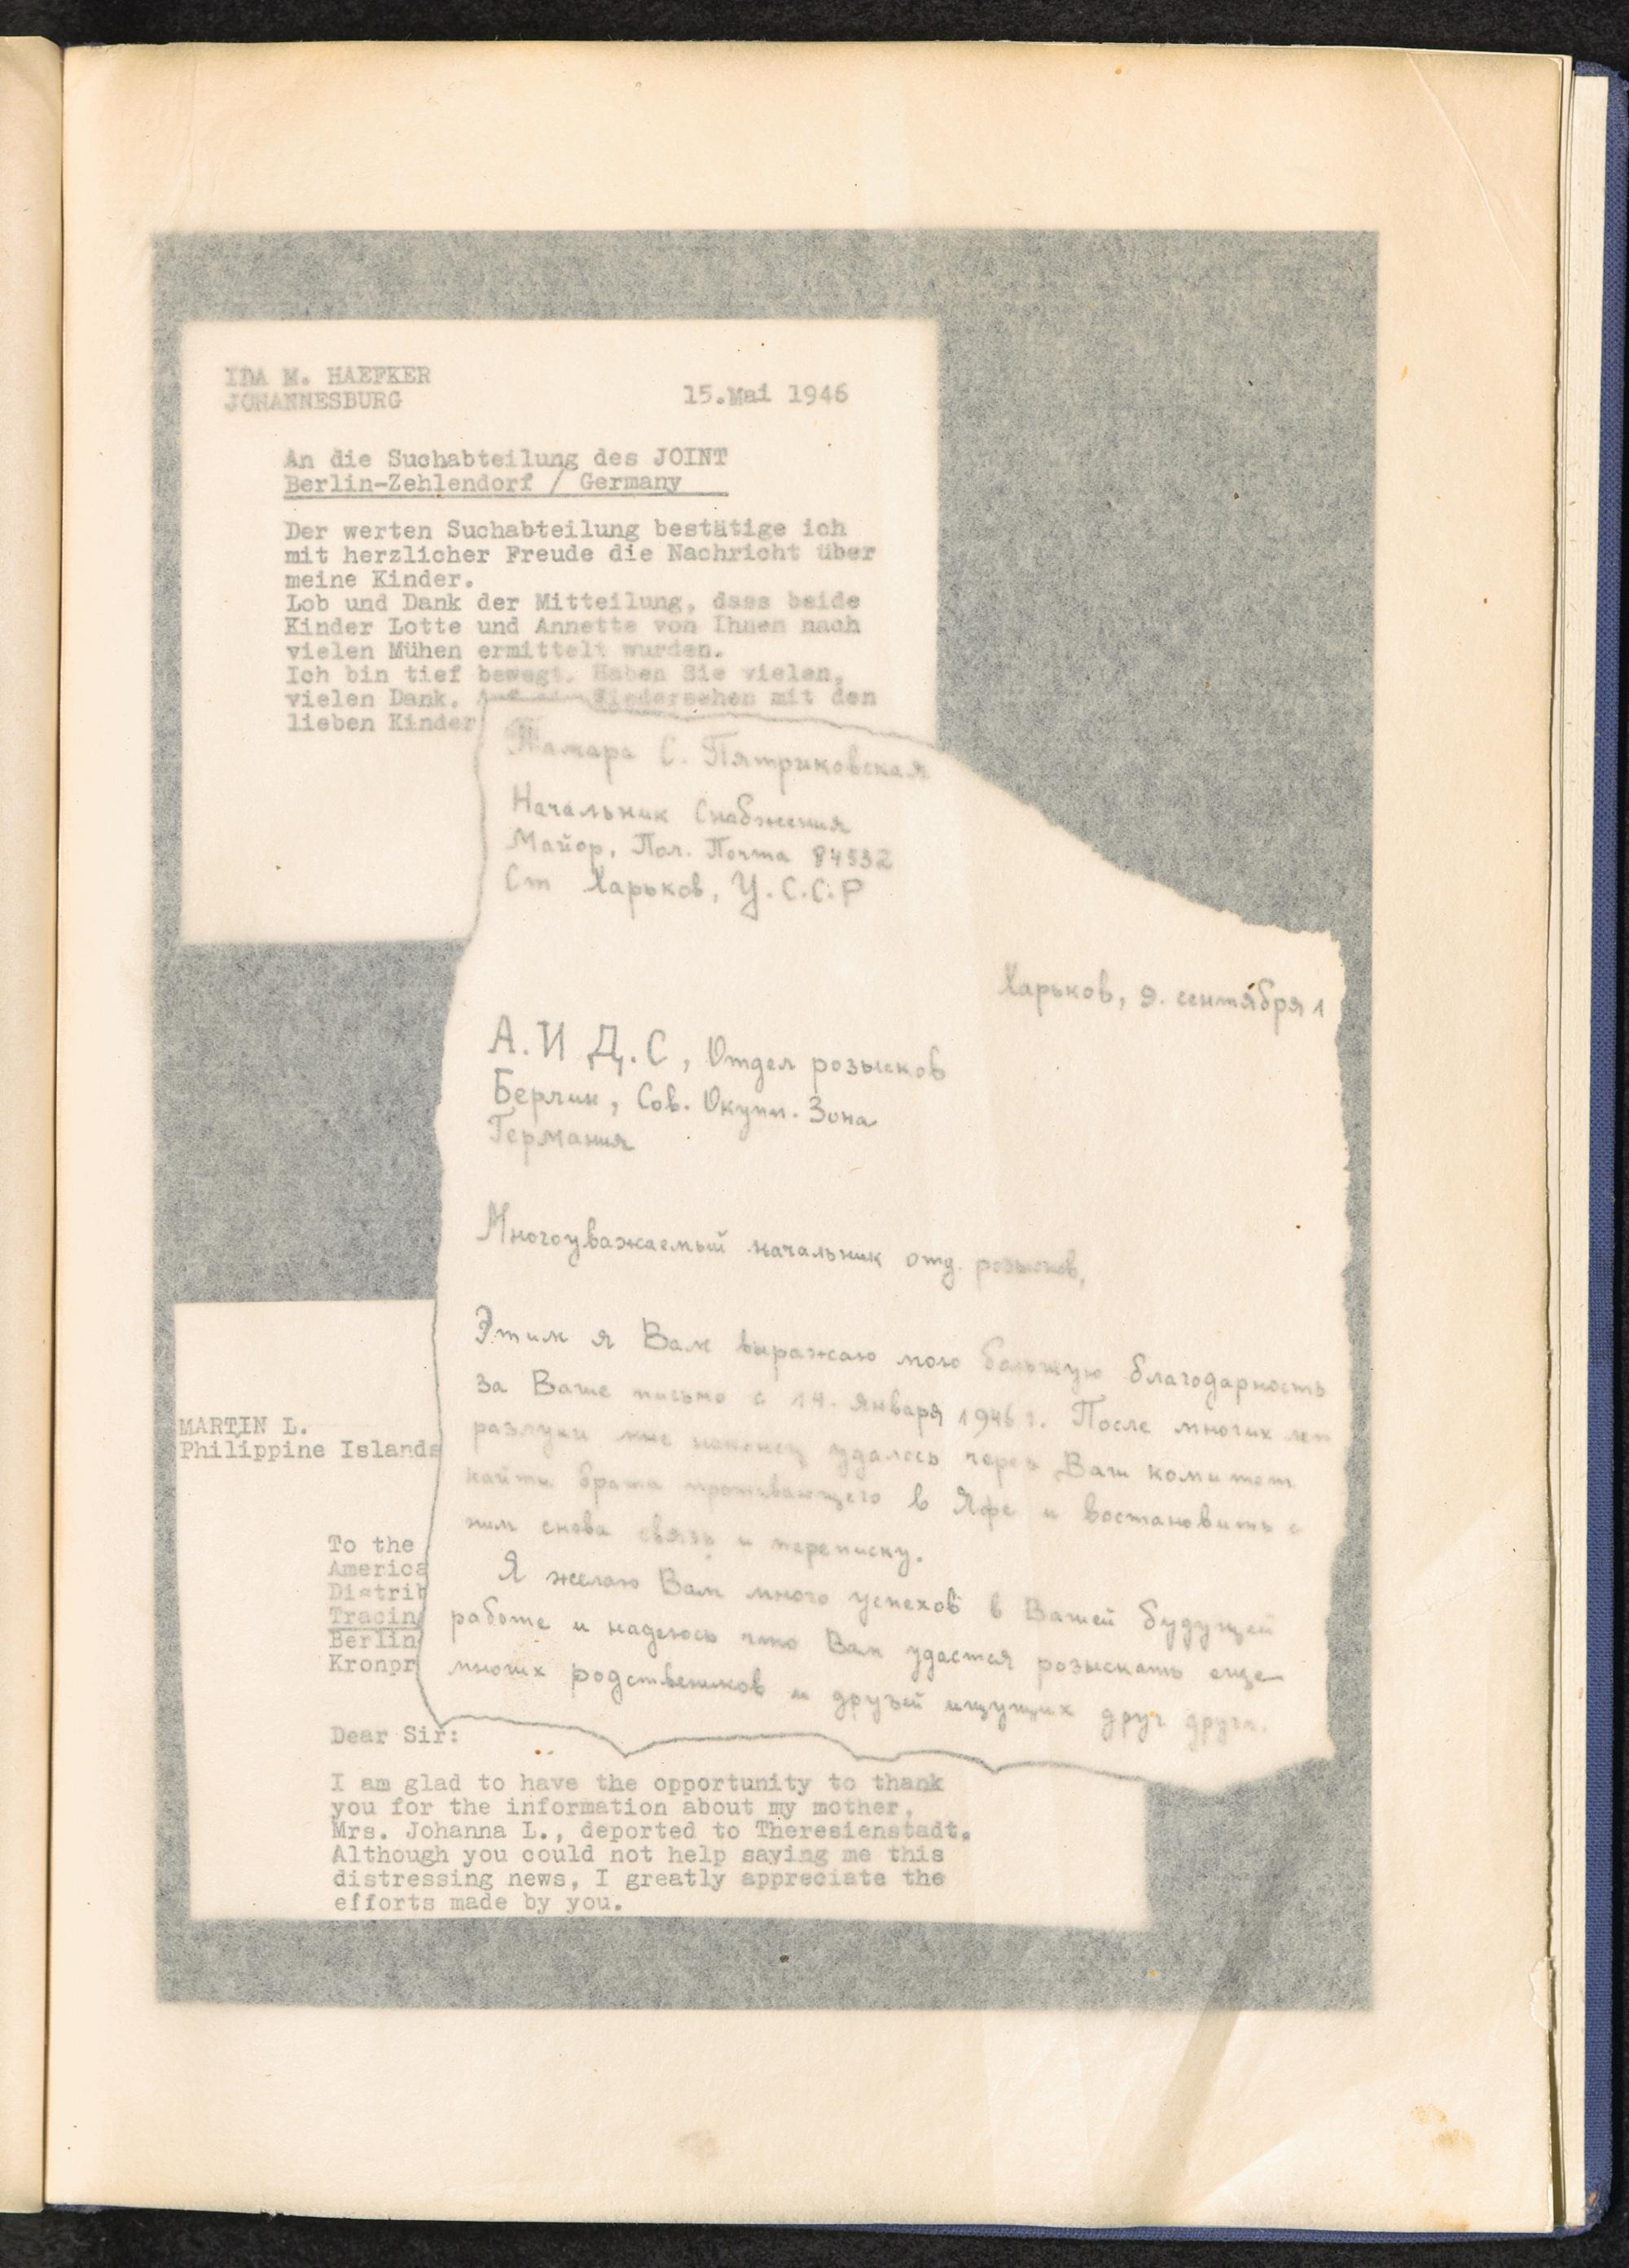 IDA M. HAEFKER
JOHANNESBURG
15.Mai 1946
An die Suchabteilung des JOINT
Berlin-Zehlendorf / Germany
Der werten Suchabteilung bestätige ich
mit herzlicher Freude die Nachricht über
meine Kinder.
Lob und Dank der Mitteilung, dass beide
Kinder Lotte und Annette von Ihnen nach
vielen Mühen ermittelt wurden.
Ich bin tief bewegt. Haben Sie vielen,
vielen Dank. Wiedersehen mit den
lieben Kinder
Тамара С. Пятриковская
Начальник Снабжения
Майор, Пол. Почта 84532
Ст Харьков, У.С.С.Р
Харьков, 9. сентября 1
А.И Д.С, Отдел розысков
Берлин, Сов. Окупи. Зона
Германия
Многоуважаемый начальник отд. розысков,
Этим я Вам выражаю мою большую благодарность
за Ваше письмо с 14. Января 1946 г. После многих лет
разлуки мне наконец удалось через Ваш комитет
найти брата проживающего в Яфе и востановить с
ним снова связь и переписку.
Я желаю Вам много успехов в Вашей будущей
работе и надеюсь что Вам удастся розыскать еще
многих родствеников и друзей ищущих друг друга.
MARTIN L.
Philippine Islands
To the
America
Distrib
Tracing
Berlin
Kronpr
Dear Sir:
I am glad to have the opportunity to thank
you for the information about my mother,
Mrs. Johanna L., deported to Theresienstadt.
Although you could not help saying me this
distressing news, I greatly appreciate the
efforts made by you.